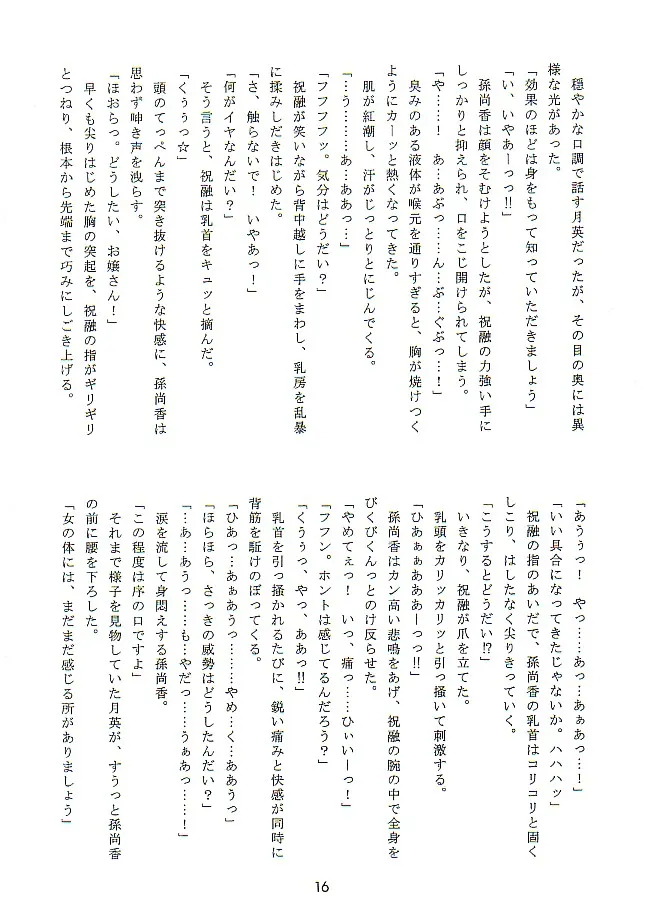 穏やかな口調で話す月英だったが、その目の奥には異
様な光があった。
「効果のほどは身をもって知っていただきましょう」
「い、いやあーっっ!!」
孫尚香は顔をそむけようとしたが、祝融の力強い手に
しっかりと抑えられ、口をこじ開けられてしまう。
「や……！　あ…あぷっ……ん…ぶ…ぐぶっ…！」
臭みのある液体が喉元を通りすぎると、胸が焼けつく
ようにカーッと熱くなってきた。
肌が紅潮し、汗がじっとりとにじんでくる。
「…う………あ…ああっ…」
「フフフフッ。気分はどうだい？」
祝融が笑いながら背中越しに手をまわし、乳房を乱暴
に揉みしだきはじめた。
「さ、触らないで！　いやあっ！」
「何がイヤなんだい？」
そう言うと、祝融は乳首をキュッと摘んだ。
「くぅぅっ☆」
頭のてっぺんまで突き抜けるような快感に、孫尚香は
思わず呻き声を洩らす。
「ほおらっ。どうしたい、お嬢さん！」
早くも尖りはじめた胸の突起を、祝融の指がギリギリ
とつねり、根本から先端まで巧みにしごき上げる。
「あうぅっ！　やっ……あっ…あぁあっ…！」
「いい具合になってきたじゃないか。ハハハッ」
祝融の指のあいだで、孫尚香の乳首はコリコリと固く
しこり、はしたなく尖りきっていく。
「こうするとどうだい!?」
いきなり、祝融が爪を立てた。
乳頭をカリッカリッと引っ掻いて刺激する。
「ひあぁぁあああーっっ!!」
孫尚香はカン高い悲鳴をあげ、祝融の腕の中で全身を
びくびくんっとのけ反らせた。
「やめてぇっ！　いっ、痛っ……ひぃいーっ！」
「フフン。ホントは感じてるんだろう？」
「くうぅっ、やっ、ああっ!!」
乳首を引っ掻かれるたびに、鋭い痛みと快感が同時に
背筋を駈けのぼってくる。
「ひあっ…あぁあうっ………やめ…く…ああうっ」
「ほらほら、さっきの威勢はどうしたんだい？」
「…あ…あうっ……も…やだっ……うぁあっ……！」
涙を流して身悶えする孫尚香。
「この程度は序の口ですよ」
それまで様子を見物していた月英が、すうっと孫尚香
の前に腰を下ろした。
「女の体には、まだまだ感じる所がありましょう」
16